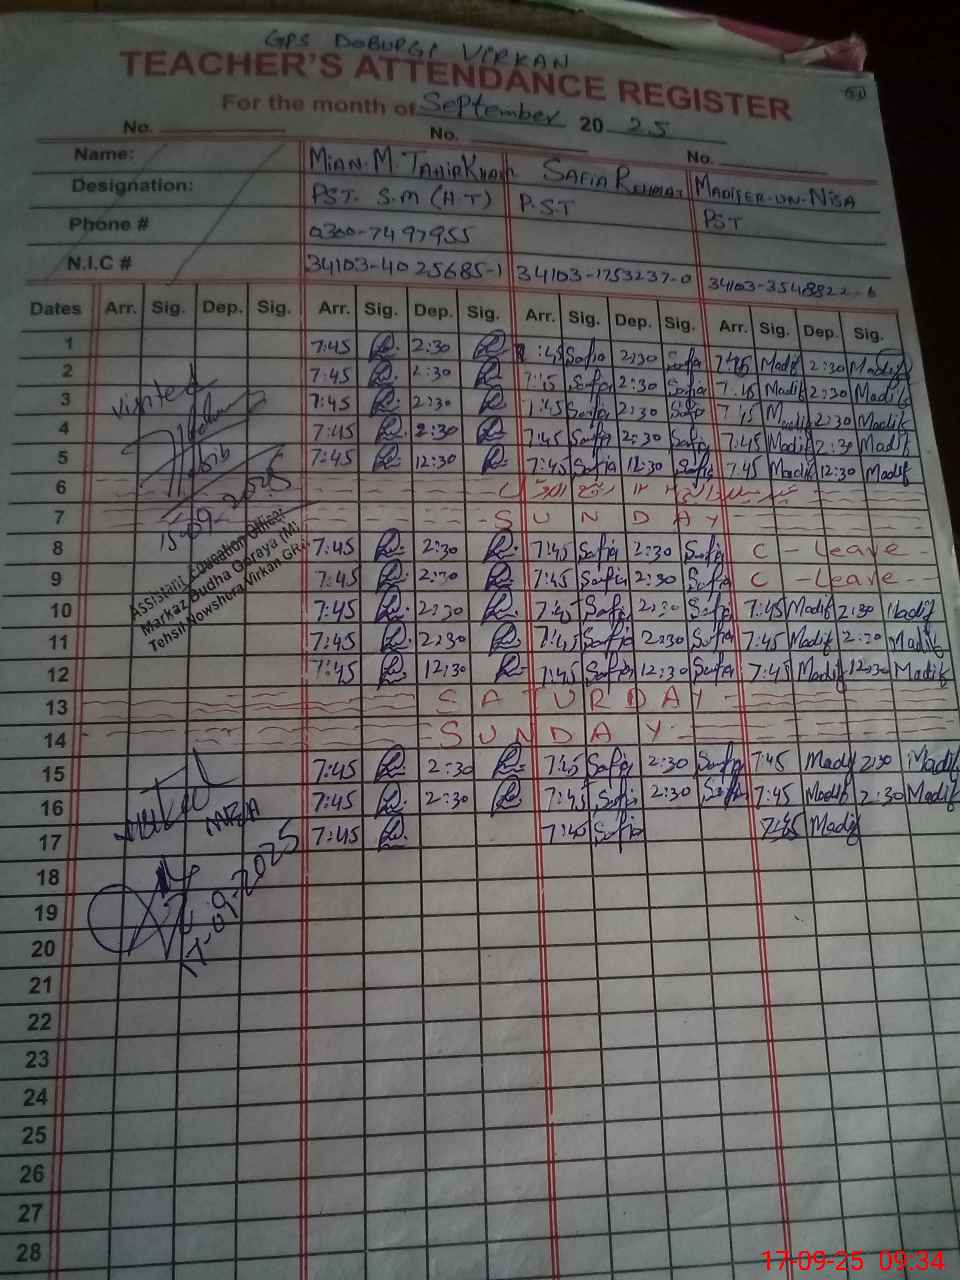 GPS DOBURGI VIRKAN
TEACHER'S ATTENDANCE REGISTER
For the month of September 20 25
No. No. No.
Name: MIAN. M. TAHIR KHAN SAFIA REHMAT MADISER-UN-NISA
Designation: PST. S.M (H.T) P.S.T PST
Phone # 0300-7497955
N.I.C # 34103-4025685-1 34103-1753237-0 34103-3548822-6
Dates Arr. Sig. Dep. Sig. Arr. Sig. Dep. Sig. Arr. Sig. Dep. Sig. Arr. Sig. Dep. Sig.
1 7:45 2:30 :45 Safia 2:30 Safia 7:45 Madif 2:30 Madif
2 7:45 2:30 7:45 Safia 2:30 Safia 7:45 Madif 2:30 Madif
3 7:45 2:30 7:45 Safia 2:30 Safia 7:45 Madif 2:30 Madif
4 7:45 2:30 7:45 Safia 2:30 Safia 7:45 Madif 2:30 Madif
5 7:45 12:30 7:45 Safia 12:30 Safia 7:45 Madif 12:30 Madif
6
7 SUNDAY
8 7:45 2:30 7:45 Safia 2:30 Safia C - Leave -
9 7:45 2:30 7:45 Safia 2:30 Safia C - Leave -
10 7:45 2:30 7:45 Safia 2:30 Safia 7:45 Madif 2:30 Madif
11 7:45 2:30 7:45 Safia 2:30 Safia 7:45 Madif 2:30 Madif
12 7:45 12:30 7:45 Safia 12:30 Safia 7:45 Madif 12:30 Madif
13 SATURDAY
14 SUNDAY
15 7:45 2:30 7:45 Safia 2:30 Safia 7:45 Madif 2:30 Madif
16 7:45 2:30 7:45 Safia 2:30 Safia 7:45 Madif 2:30 Madif
17 7:45 7:45 Safia 7:45 Madif
18
19
20
21
22
23
24
25
26
27
28
Visited
15-09-2025
Assistant Education Officer
Markaz Budha Goraya (M)
Tehsil Nowshera Virkan GRW
Visited
MEA
17-09-2025
17-09-25 09:34